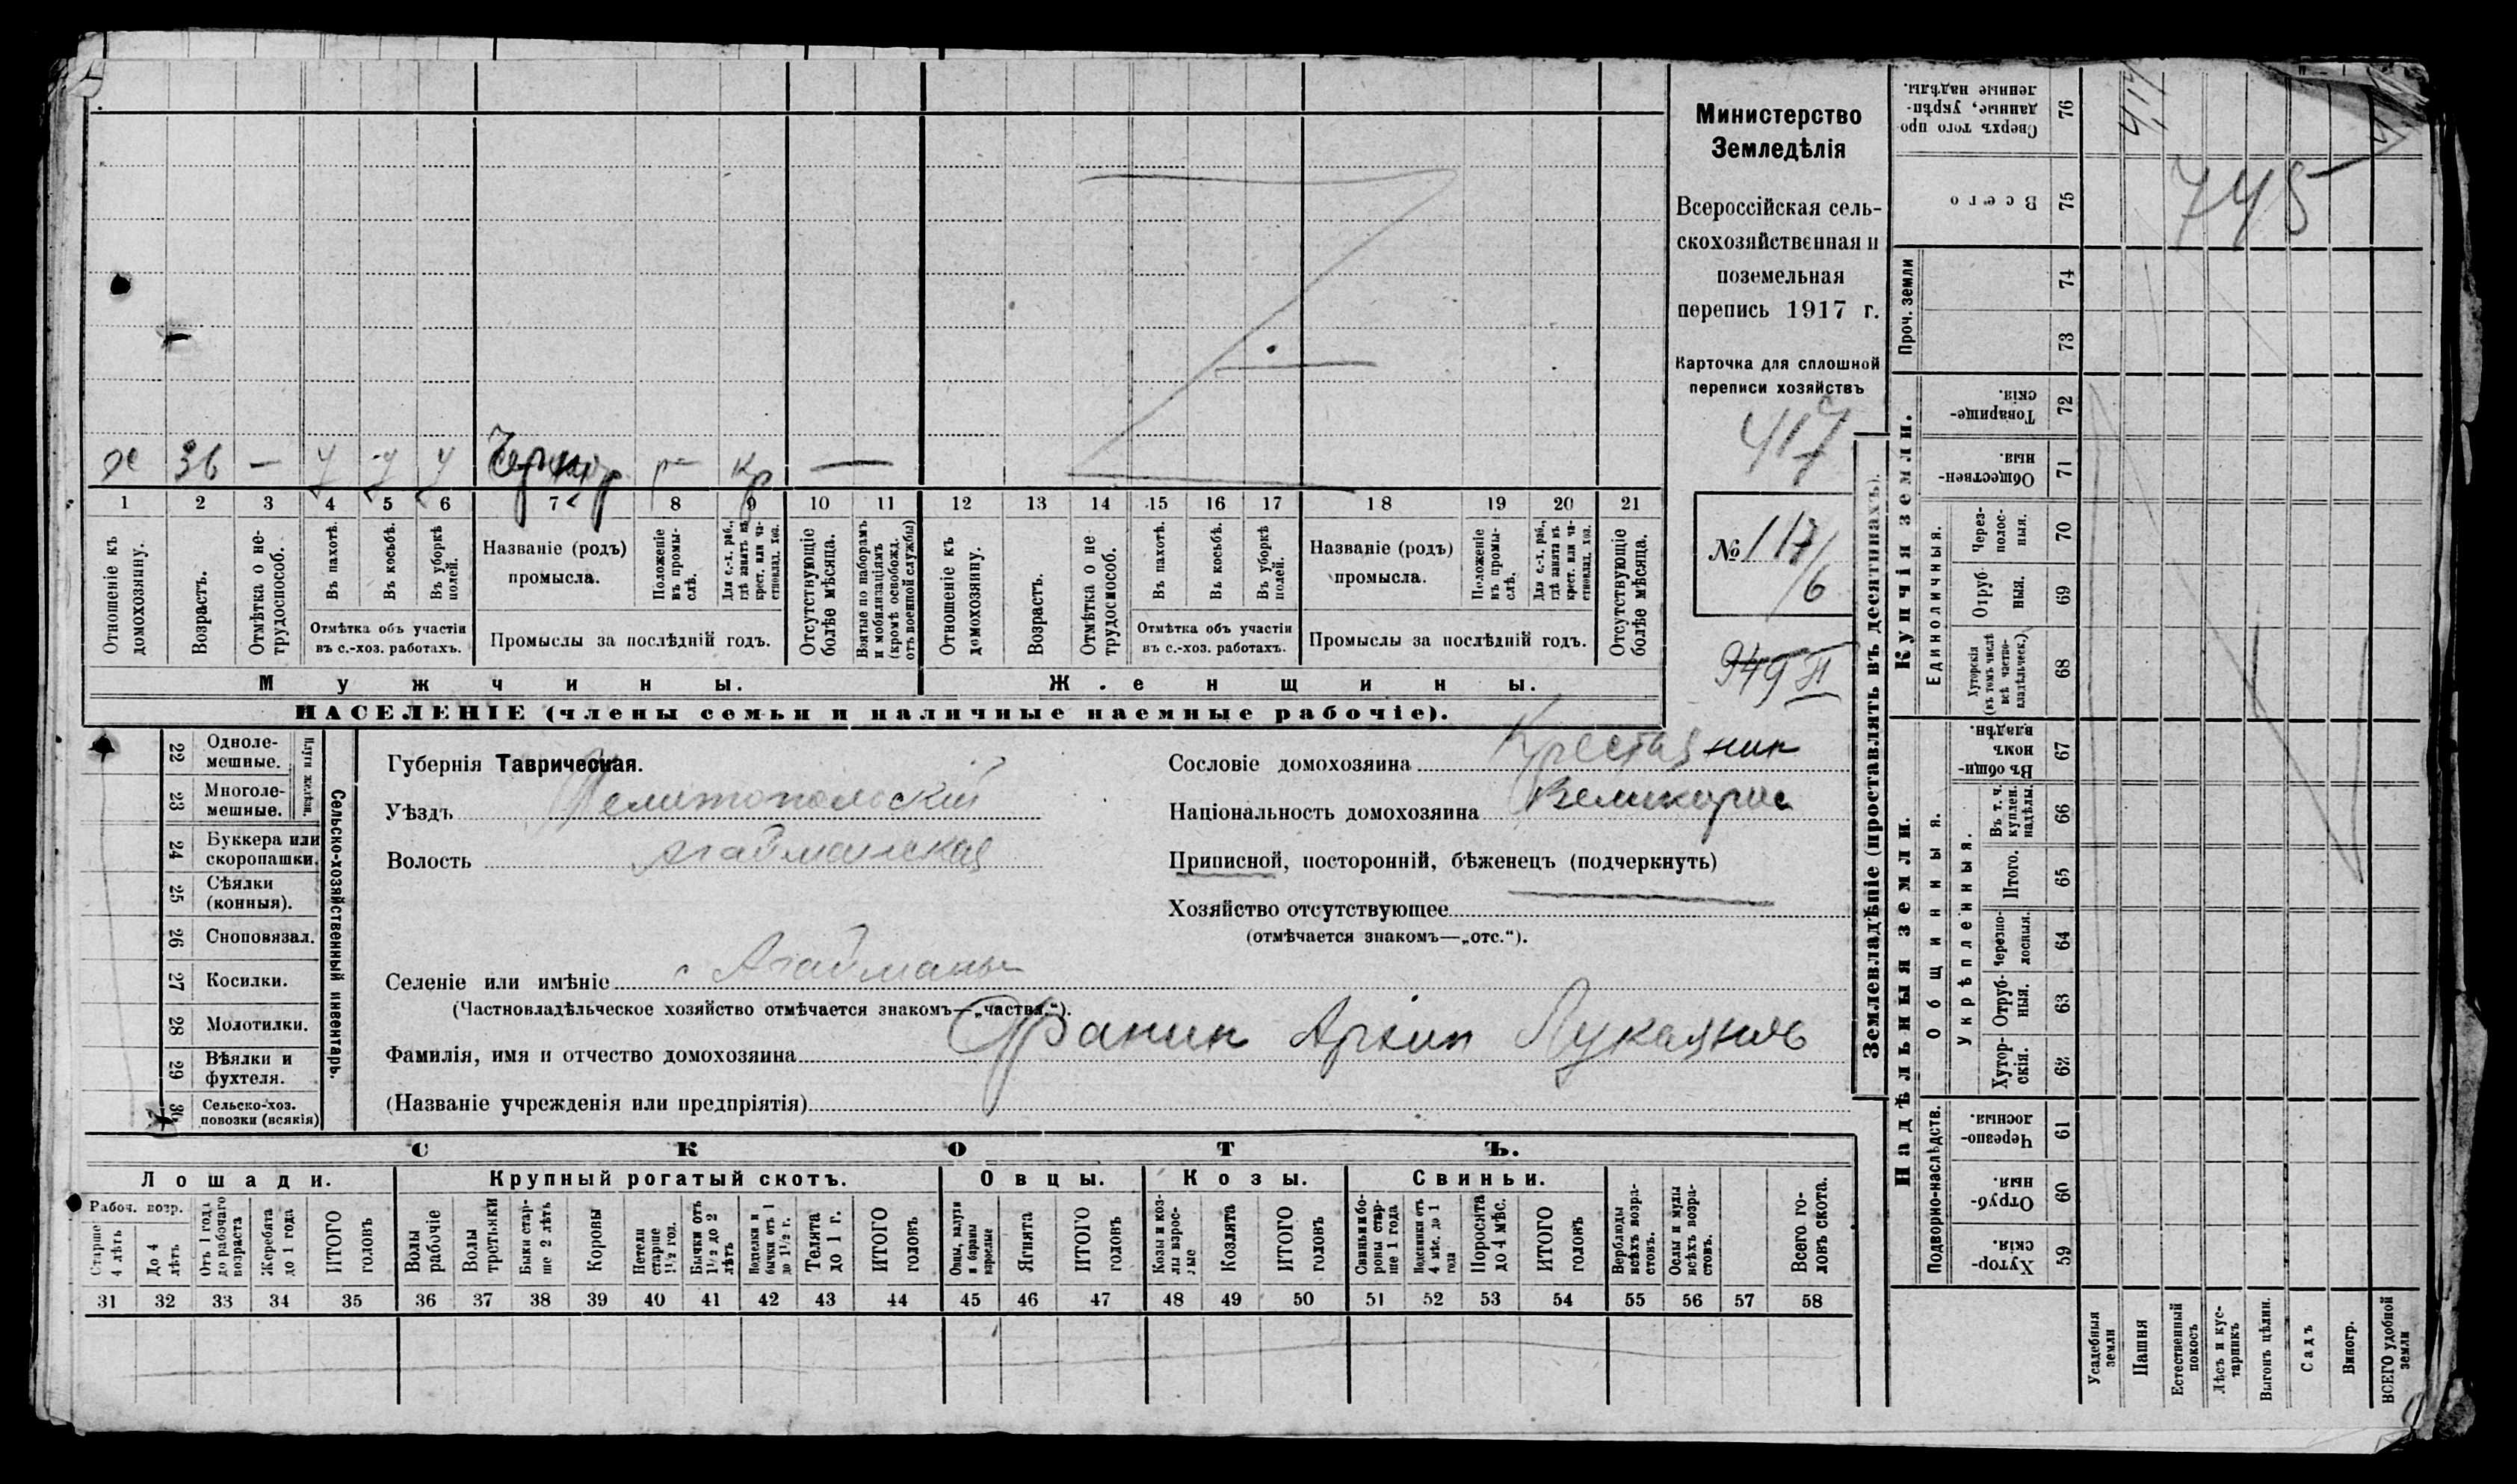 Министерство
Земледѣлія
Всероссійская сель-
скохозяйственная и
поземельная
перепись 1917 г.
Карточка для сплошной
переписи хозяйствъ
417
№ 117/6
949 II
х 36 — у у у р кр —
1 2 3 4 5 6 7 8 9 10 11 12 13 14 15 16 17 18 19 20 21
Отношеніе къ домохозяину.
Возрастъ.
Отмѣтка о не-трудоспособ.
Въ пахотѣ.
Въ косьбѣ.
Въ уборкѣ полей.
Отмѣтка объ участіи
въ с.-хоз. работахъ.
Названіе (родъ)
промысла.
Положеніе въ промы-слѣ.
Для с.-х. раб., гдѣ занятъ въ крест. или ча-стновлад. хоз.
Промыслы за послѣдній годъ.
Отсутствующіе болѣе мѣсяца.
Взятые по наборамъ и мобилизаціямъ (кромѣ освобожд. отъ военной службы)
Отношеніе къ домохозяину.
Возрастъ.
Отмѣтка о не-трудоспособ.
Въ пахотѣ.
Въ косьбѣ.
Въ уборкѣ полей.
Отмѣтка объ участіи
въ с.-хоз. работахъ.
Названіе (родъ)
промысла.
Положеніе въ промы-слѣ.
Для с.-х. раб., гдѣ занята въ крест. или ча-стновлад. хоз.
Промыслы за послѣдній годъ.
Отсутствующіе болѣе мѣсяца.
Мужчины.
Женщины.
НАСЕЛЕНІЕ (члены семьи и наличные наемные рабочіе).
22 Одноле-мешные.
23 Многоле-мешные.
Плуги желѣзн.
24 Буккера или скоропашки.
25 Сѣялки (конныя).
26 Сноповязал.
27 Косилки.
28 Молотилки.
29 Вѣялки и фухтеля.
30 Сельско-хоз. повозки (всякія)
Сельско-хозяйственный инвентарь.
Губернія Таврическая.
Уѣздъ Мелитопольскій
Волость Агайманская
Селеніе или имѣніе с Агайманы
(Частновладѣльческое хозяйство отмѣчается знакомъ—„частвл.“).
Фамилія, имя и отчество домохозяина Фанин Архип Лукаянов
(Названіе учрежденія или предпріятія)
Сословіе домохозяина Крестянин
Національность домохозяина Великорос
Приписной, посторонній, бѣженецъ (подчеркнуть)
Хозяйство отсутствующее
(отмѣчается знакомъ—„отс.“).
СКОТЪ.
Лошади. Крупный рогатый скотъ. Овцы. Козы. Свиньи.
Рабоч. возр.
Старше 4 лѣтъ
До 4 лѣтъ
Отъ 1 года до рабочаго возраста
Жеребята до 1 года
ИТОГО головъ
Волы рабочіе
Волы гостьяки
Быки стар-ше 2 лѣтъ
Коровы
Нетели старше 1½ год.
Бычки отъ 1½ до 2 лѣтъ
Подтелки и бычки отъ 1 до 1½ г.
Телята до 1 г.
ИТОГО головъ
Овцы, валухи и бараны взрослые
Ягнята
ИТОГО головъ
Козы и коз-лы взрос-лые
Козлята
ИТОГО головъ
Свиньи и бо-ровы стар-ше 1 года
Подсвинки отъ 4 мѣс. до 1 года
Поросята до 4 мѣс.
ИТОГО головъ
Верблюды всѣхъ возра-стовъ.
Ослы и мулы всѣхъ возра-стовъ.
Всего го-ловъ скота.
31 32 33 34 35 36 37 38 39 40 41 42 43 44 45 46 47 48 49 50 51 52 53 54 55 56 57 58
Землевладѣніе (проставлять въ десятинахъ).
Надѣльныя земли.
Купчія земли.
Проч. земли
Подворно-наслѣдств.
Общинныя.
Укрѣпленныя.
Единоличныя.
Сверхъ того про данные, укрѣп-ленные надѣлы. 76
Всего 75
74
73
Товарище-скія. 72
Обществен-ныя. 71
Через-полос-ныя. 70
Отруб-ныя. 69
Хуторскія (въ томъ числѣ всѣ частно-владѣльческ.) 68
Въ общи-номъ владѣн. 67
Въ т. ч. куплен. надѣлы. 66
Итого. 65
Черезпо-лосныя. 64
Отруб-ныя. 63
Хутор-скія. 62
Черезпо-лосныя. 61
Отруб-ныя. 60
Хутор-скія. 59
Усадебныя земли
Пашня
Естественный покосъ
Лѣсъ и кус-тарникъ
Выгонъ цѣлин.
Садъ
Виногр.
ВСЕГО удобной земли
417
745